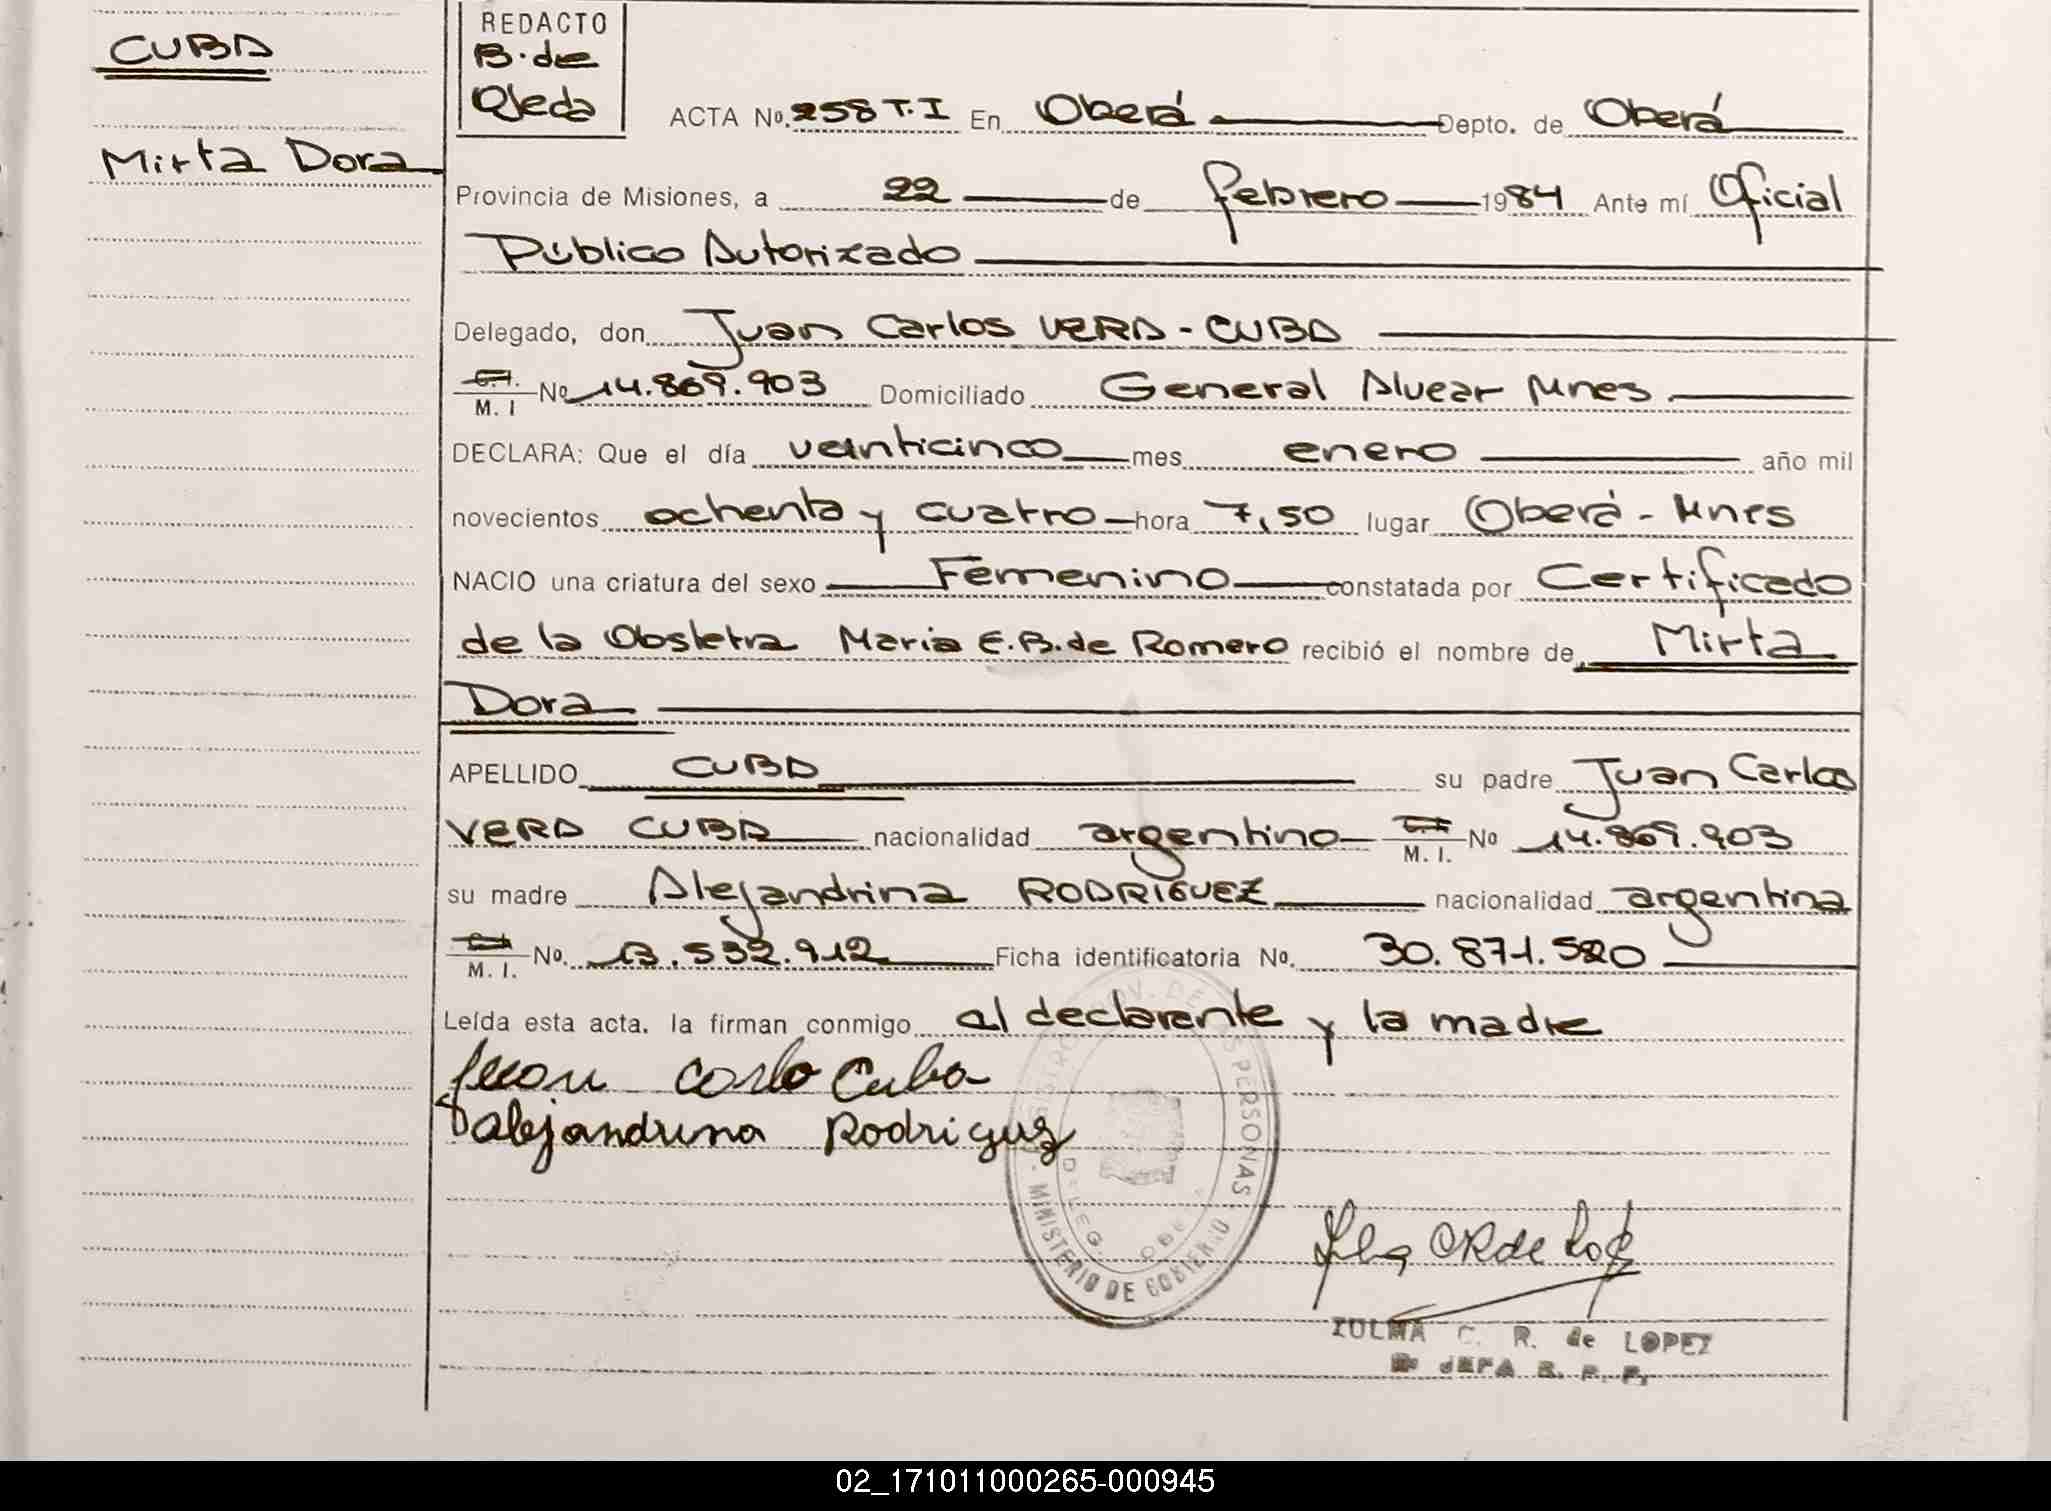 CUBA
Mirta Dora
REDACTO
B. de
Ojeda
ACTA No. 258 T. I En Oberá Depto. de Oberá
Provincia de Misiones, a 22 de febrero 1984 Ante mí Oficial
Público Autorizado
Delegado, don Juan Carlos VERA - CUBA
C.I. M. I No 14.869.903 Domiciliado General Alvear Mnes
DECLARA: Que el día veinticinco mes enero año mil
novecientos ochenta y cuatro hora 7,50 lugar Oberá - Mnes
NACIO una criatura del sexo Femenino constatada por Certificado
de la Obstetra Maria E. B. de Romero recibió el nombre de Mirta
Dora
APELLIDO CUBA su padre Juan Carlos
VERA CUBA nacionalidad argentino C.I. M. I. No 14.869.903
su madre Alejandrina RODRIGUEZ nacionalidad argentina
C.I. M. I. No. 13.532.912 Ficha identificatoria No. 30.871.520
Leída esta acta. la firman conmigo al declarante y la madre
Juan Carlo Cuba
alejandrina Rodriguz
PROV. DE LAS PERSONAS
MINISTERIO DE GOBIERNO
DELEG. OBE
ZULMA C. R. de LOPEZ
JEFA
02_171011000265-000945